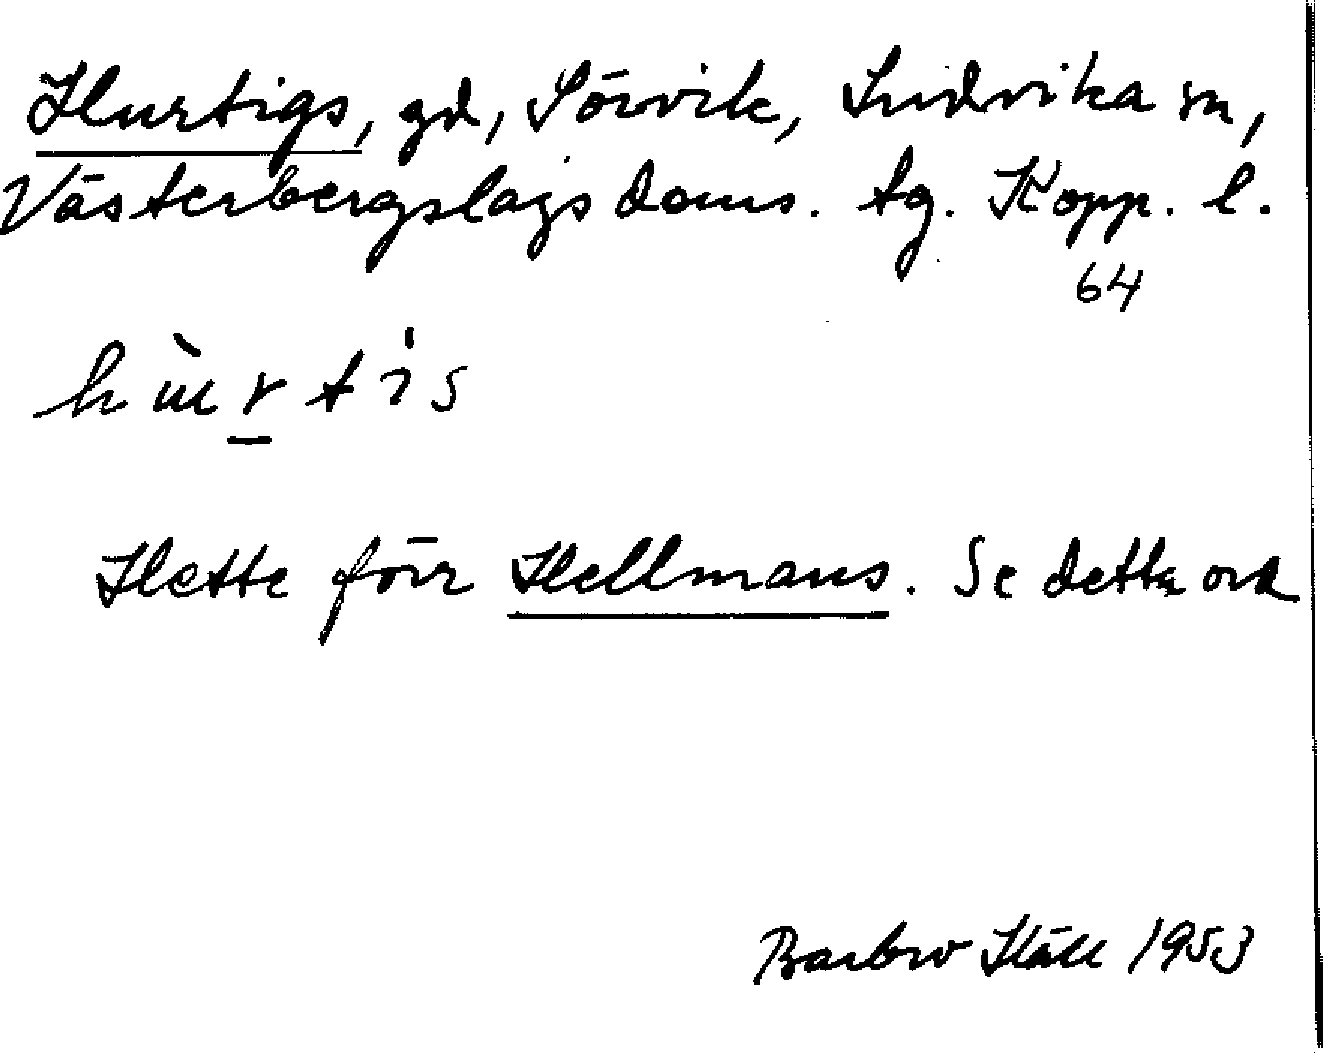 Hurtigs, gd, Sörvik, Ludvika sn,
Västerbergslags doms. tg. Kopp. l.
64
Hette förr Hellmans. Se detta ord
Barbro Häll 1953